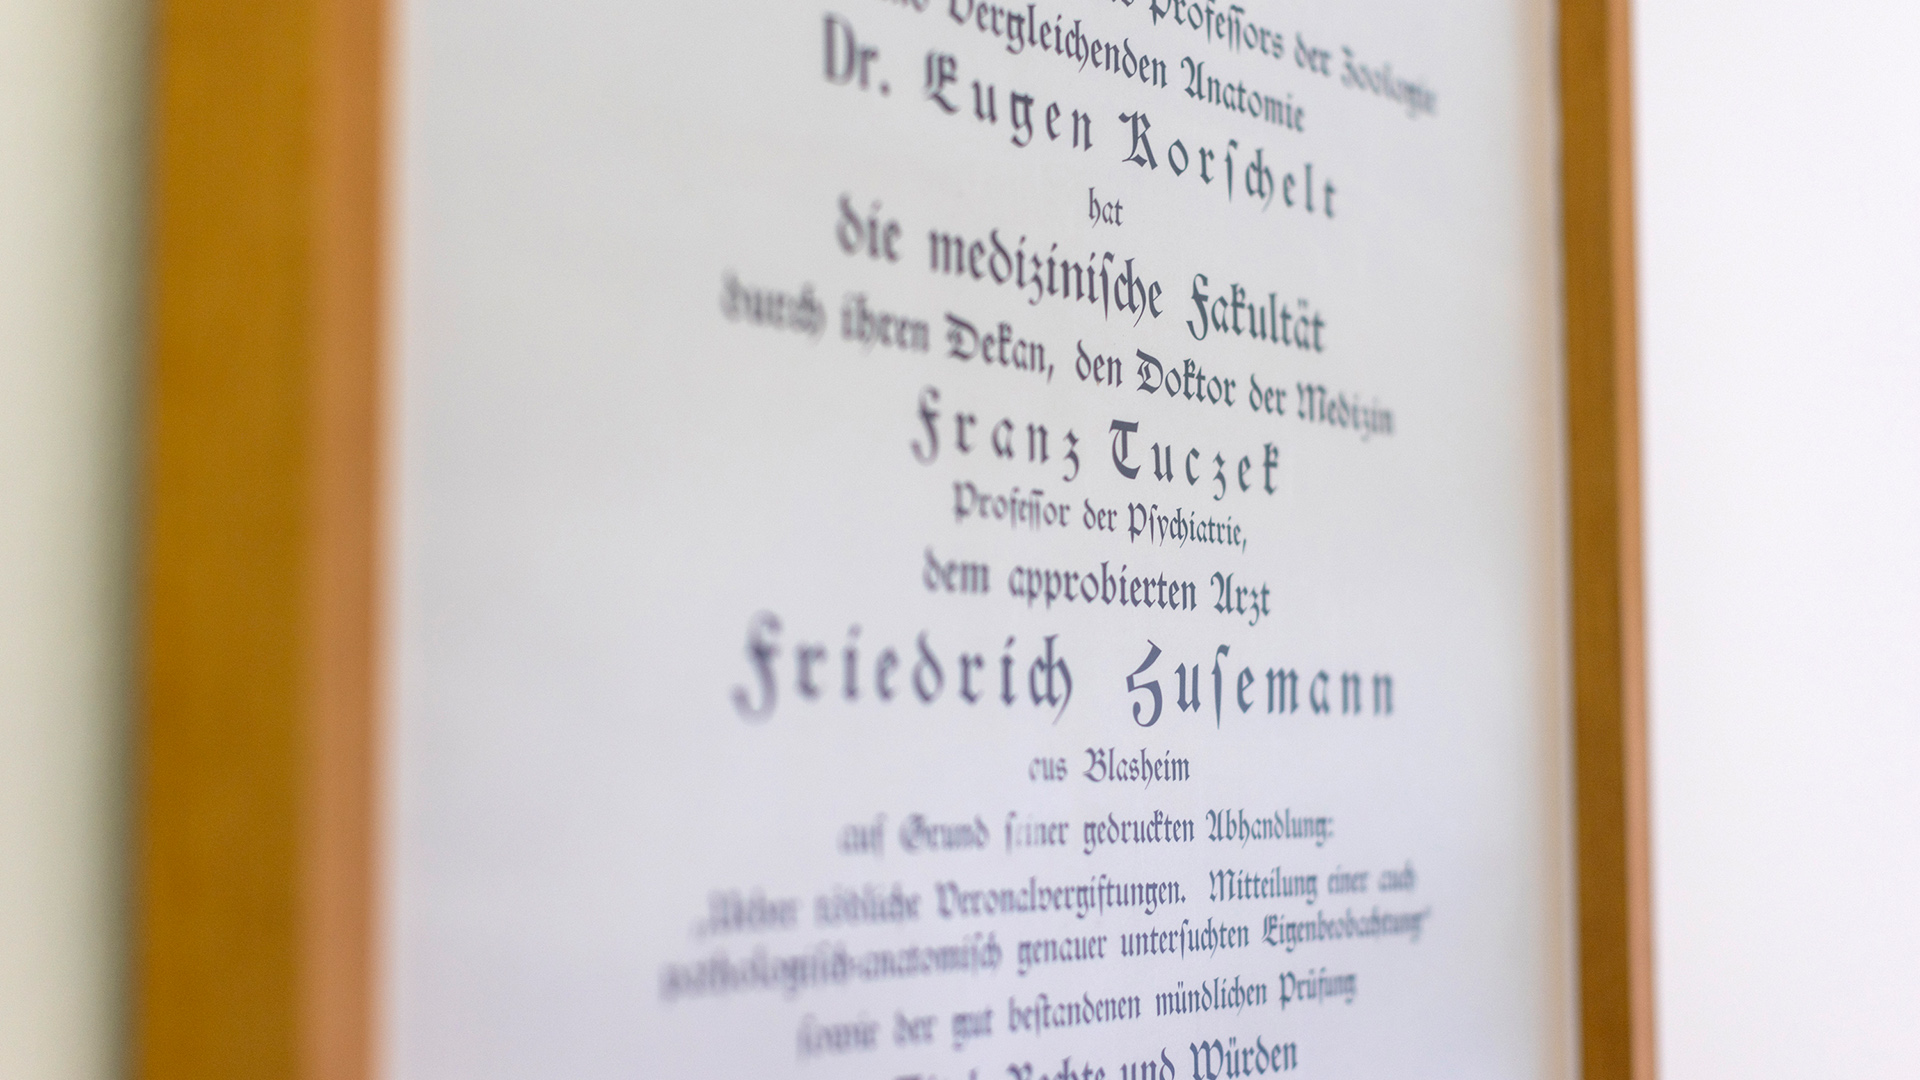 Professors der Zoologie
Vergleichenden Anatomie
Dr. Eugen Korschelt
hat
die medizinische Fakultät
durch ihren Dekan, den Doktor der Medizin
Franz Tuczek
Professor der Psychiatrie,
dem approbierten Arzt
Friedrich Husemann
aus Blasheim
auf Grund seiner gedruckten Abhandlung:
„Ueber tödliche Veronalvergiftungen. Mitteilung einer auch
pathologisch-anatomisch genauer untersuchten Eigenbeobachtung“
sowie der gut bestandenen mündlichen Prüfung
Rechte und Würden